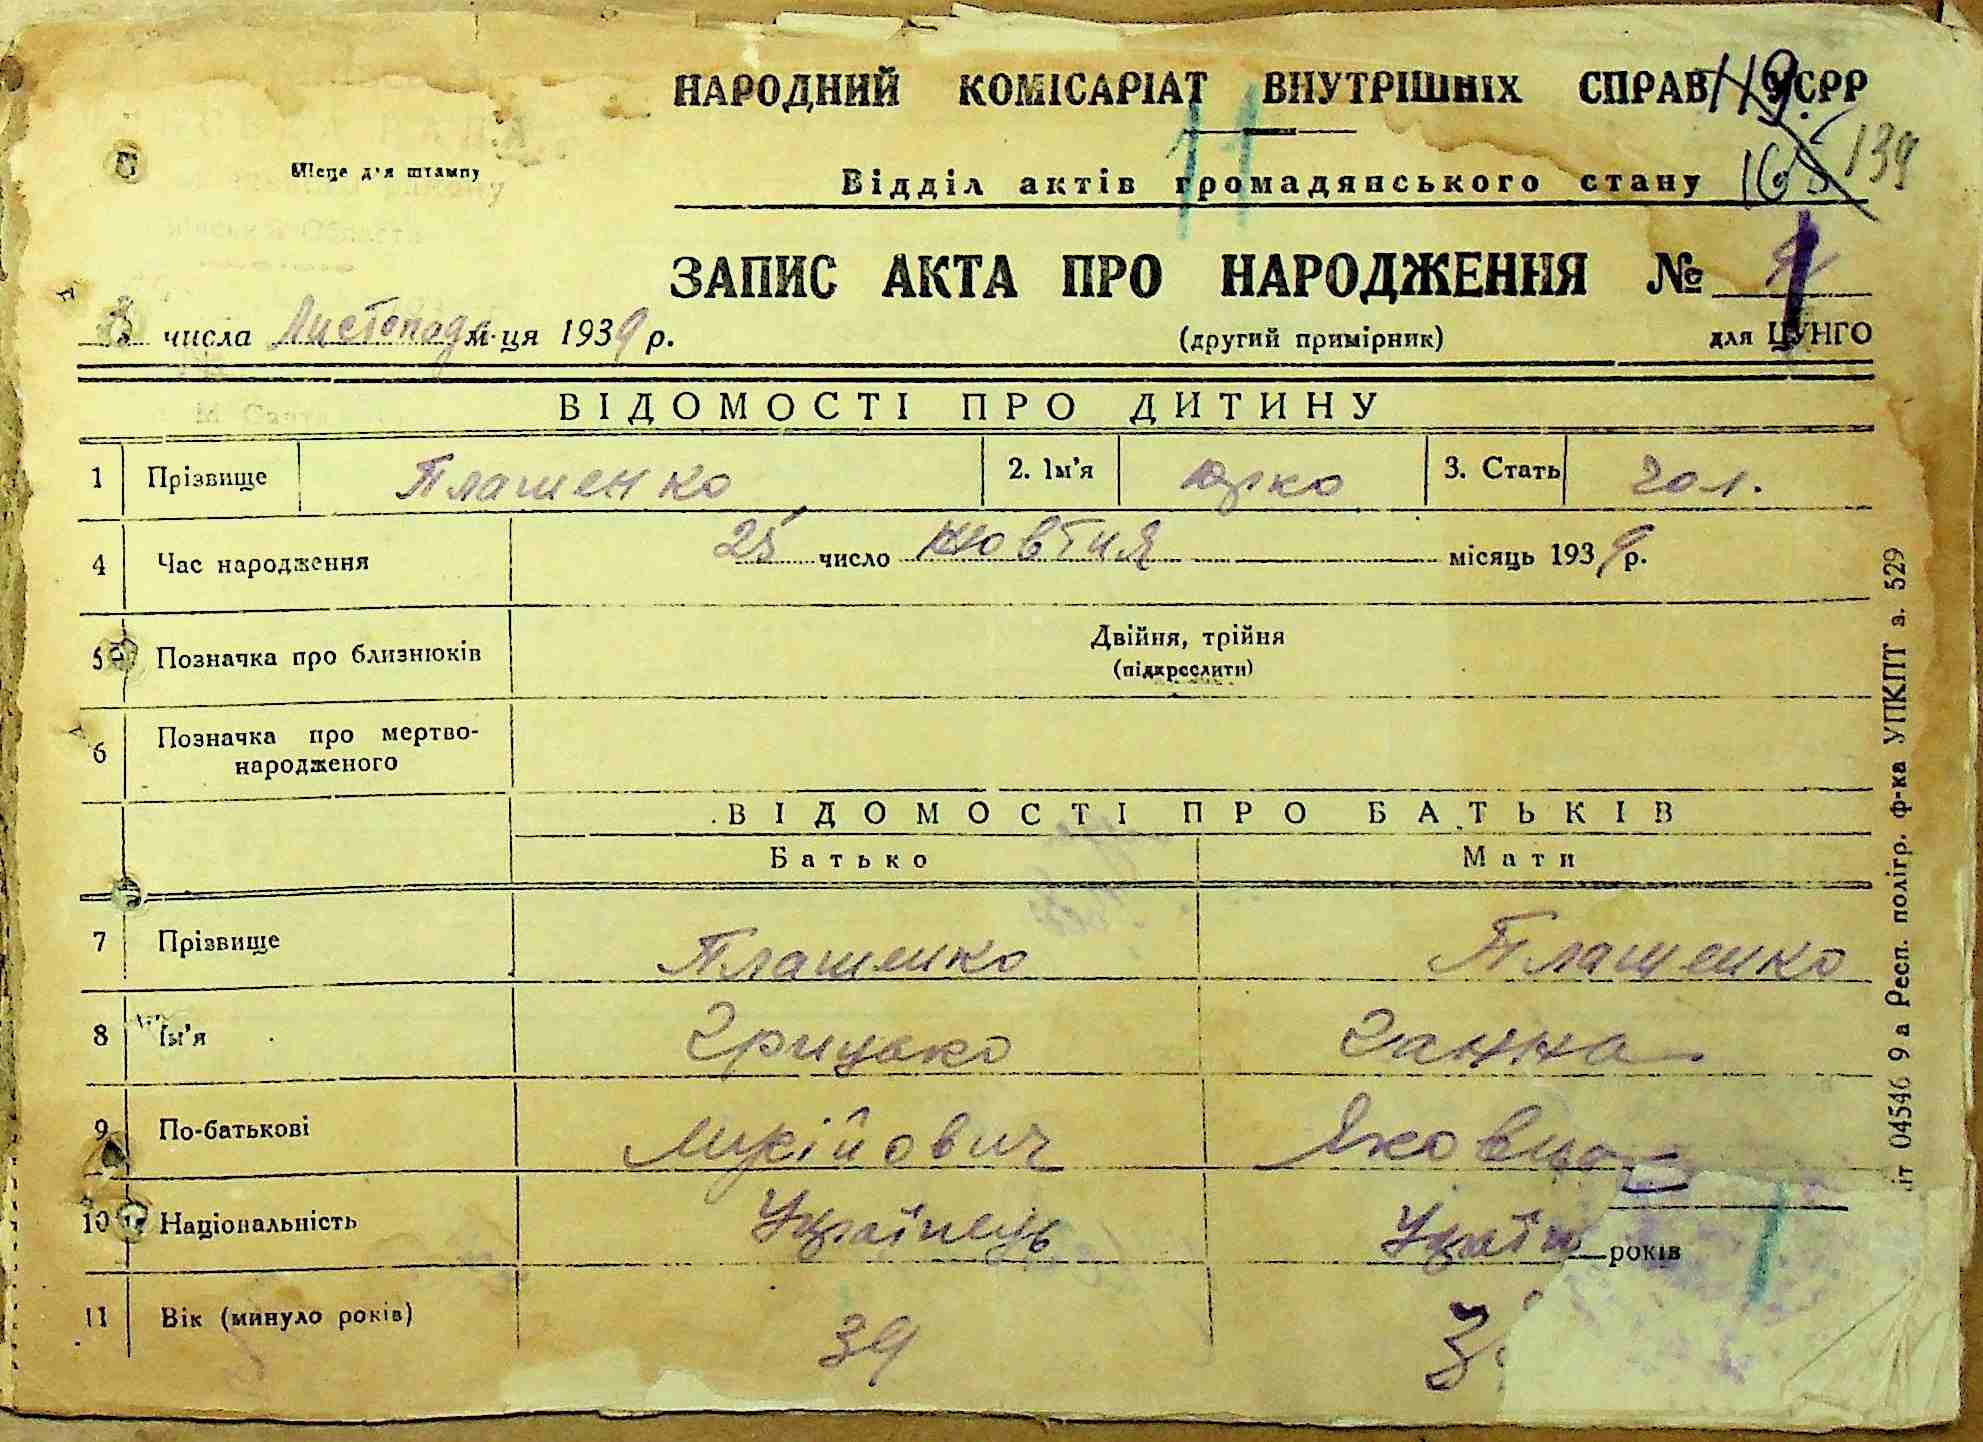 НАРОДНИЙ КОМІСАРІАТ ВНУТРІШНІХ СПРАВ УСРР
119.
139
165
11
Місце для штампу
Відділ актів громадянського стану
ЗАПИС АКТА ПРО НАРОДЖЕННЯ №
числа Листопада м-ця 1939 р.
(другий примірник)
для ЦУНГО
ВІДОМОСТІ ПРО ДИТИНУ
1 Прізвище Плашенко 2. Ім'я Юрко 3. Стать чол.
4 Час народження 25 число жовтня місяць 1939 р.
5 Позначка про близнюків Двійня, трійня
(підкреслити)
6 Позначка про мертво-
народженого
ВІДОМОСТІ ПРО БАТЬКІВ
Батько Мати
7 Прізвище Плашенко Плашенко
8 Ім'я Грицько Ганна
9 По-батькові Мусійович Яковна
10 Національність Українець Україн
років
11 Вік (минуло років) 39 3
іт 04546 9 а Респ. полігр. ф-ка УПКПТ з. 529